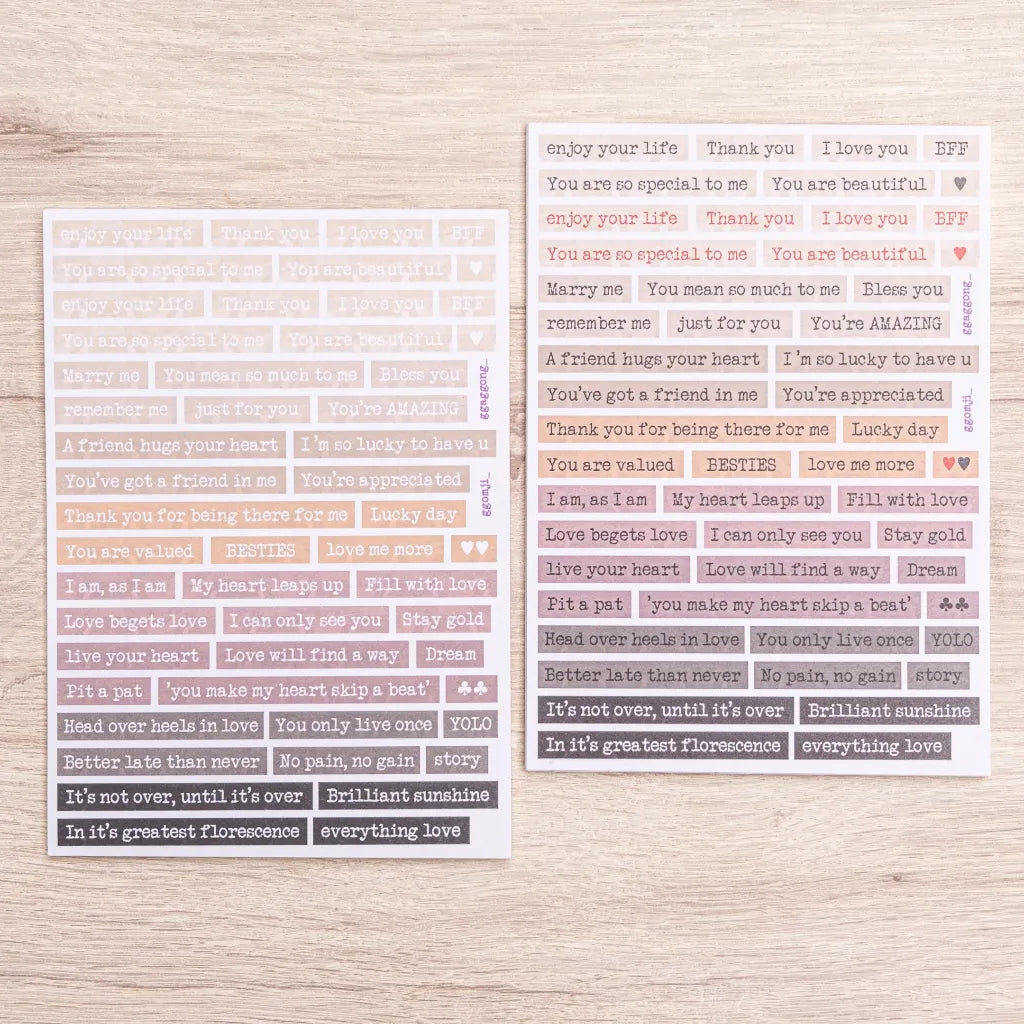 enjoy your life Thank you I love you BFF
You are so special to me You are beautiful ♥
enjoy your life Thank you I love you BFF
You are so special to me You are beautiful ♥
Marry me You mean so much to me Bless you
remember me just for you You're AMAZING
A friend hugs your heart I'm so lucky to have u
You've got a friend in me You're appreciated
Thank you for being there for me Lucky day
You are valued BESTIES love me more ♥♥
I am, as I am My heart leaps up Fill with love
Love begets love I can only see you Stay gold
live your heart Love will find a way Dream
Pit a pat 'you make my heart skip a beat' ♣♣
Head over heels in love You only live once YOLO
Better late than never No pain, no gain story
It's not over, until it's over Brilliant sunshine
In it's greatest florescence everything love
ggaggong_
ggomji_
enjoy your life Thank you I love you BFF
You are so special to me You are beautiful ♥
enjoy your life Thank you I love you BFF
You are so special to me You are beautiful ♥
Marry me You mean so much to me Bless you
remember me just for you You're AMAZING
A friend hugs your heart I'm so lucky to have u
You've got a friend in me You're appreciated
Thank you for being there for me Lucky day
You are valued BESTIES love me more ♥♥
I am, as I am My heart leaps up Fill with love
Love begets love I can only see you Stay gold
live your heart Love will find a way Dream
Pit a pat 'you make my heart skip a beat' ♣♣
Head over heels in love You only live once YOLO
Better late than never No pain, no gain story
It's not over, until it's over Brilliant sunshine
In it's greatest florescence everything love
ggaggong_
ggomji_